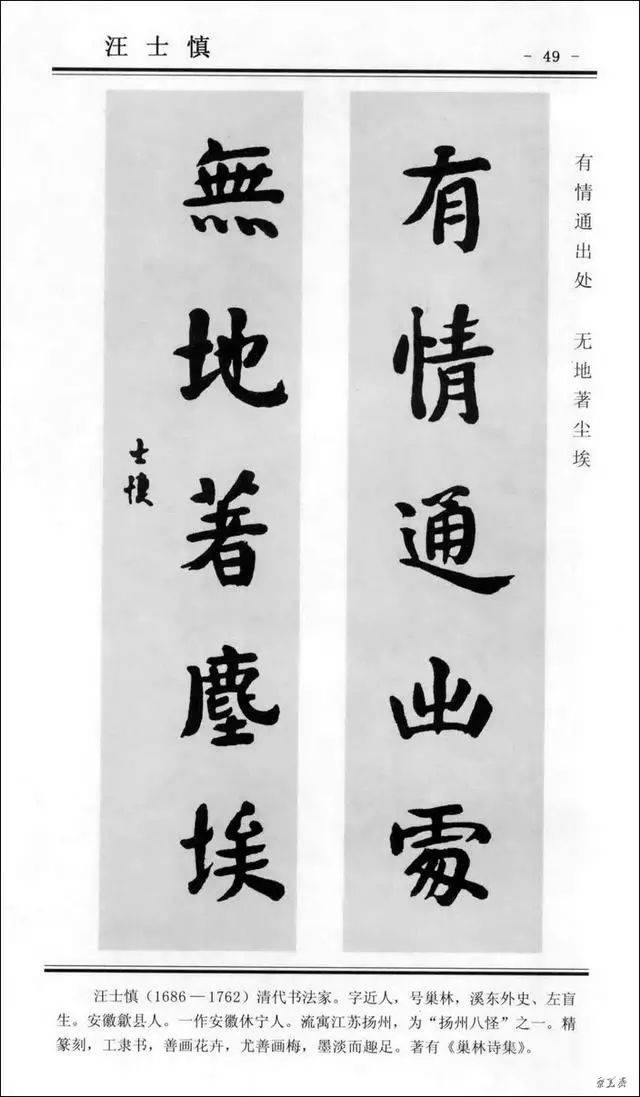 汪士慎
- 49 -
有情通出处 无地著尘埃
有情通出處
無地著塵埃
士慎
汪士慎（1686—1762）清代书法家。字近人，号巢林，溪东外史、左盲
生。安徽歙县人。一作安徽休宁人。流寓江苏扬州，为“扬州八怪”之一。精
篆刻，工隶书，善画花卉，尤善画梅，墨淡而趣足。著有《巢林诗集》。